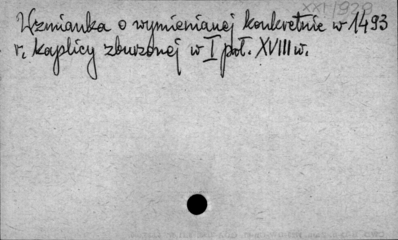 XXI/928
Wzmianka o wymienianej konkretnie w 1493
r. kaplicy zburzonej w I poł. XVIII w.